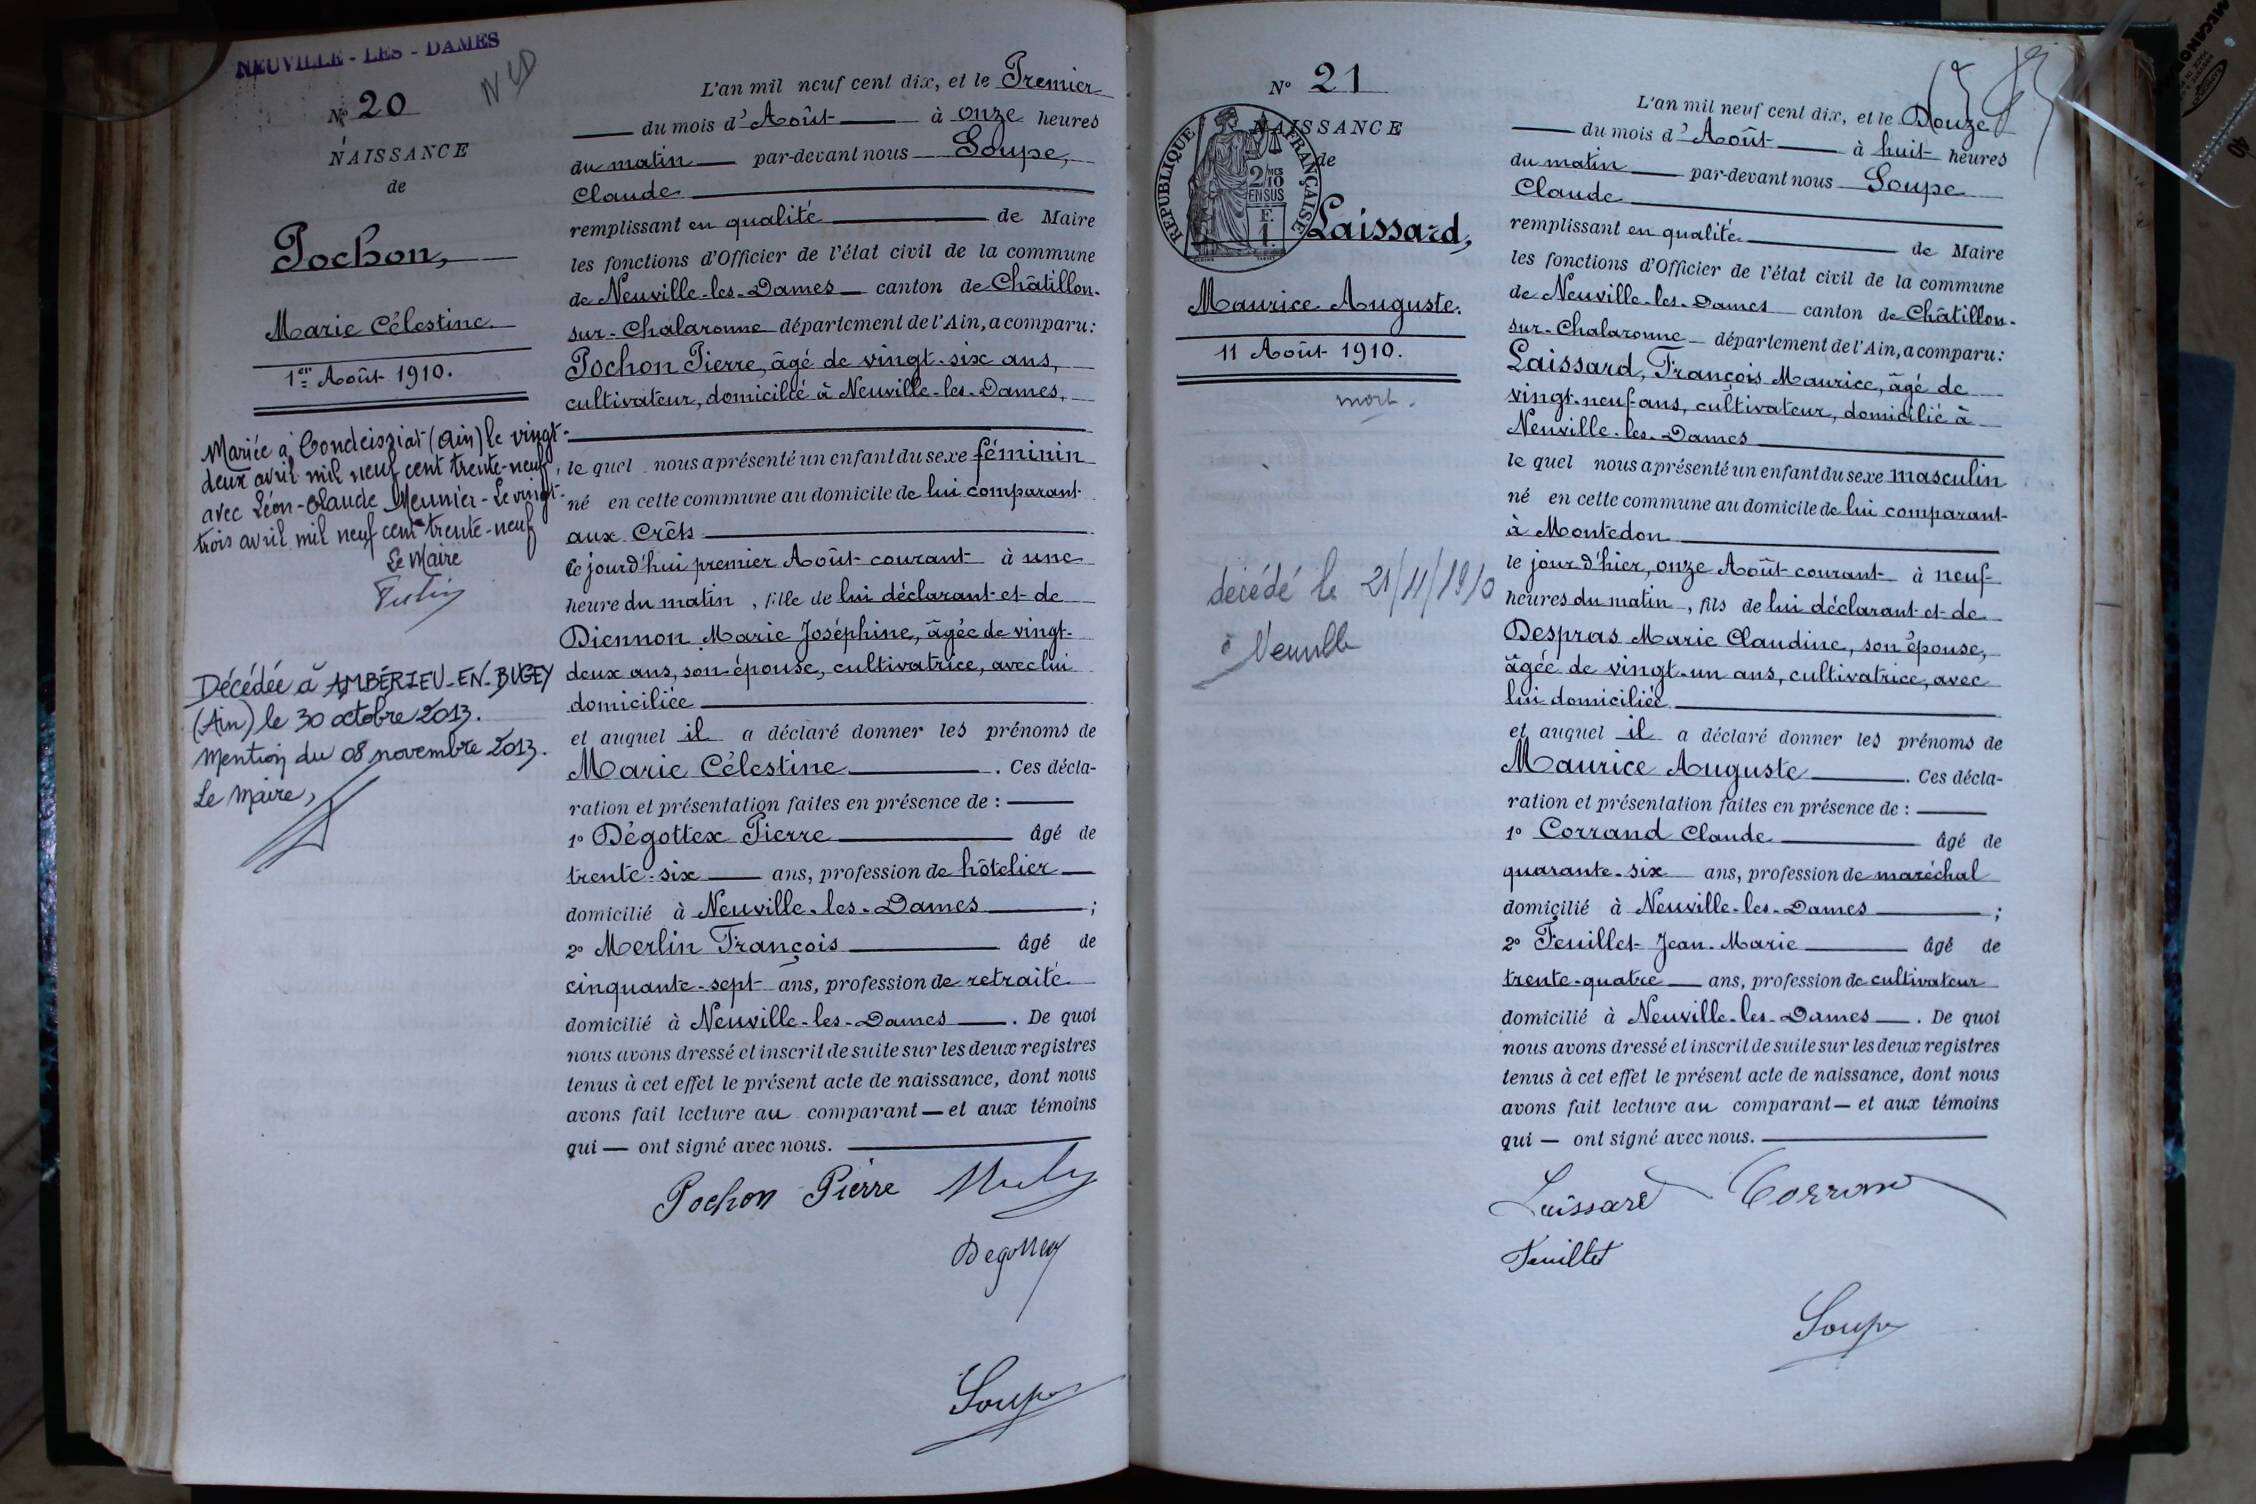 NEUVILLE - LES - DAMES
NLD
N° 20
NAISSANCE
de
Pochon,
Marie Célestine.
1er Août 1910.
Mariée à Condeissiat (Ain) le vingt-
deux avril mil neuf cent trente-neuf,
avec Léon-Claude Meunier - Le vingt-
trois avril mil neuf cent trente-neuf
Le Maire
Décédée à AMBÉRIEU-EN-BUGEY
(Ain) le 30 octobre 2013.
Mention du 08 novembre 2013.
Le Maire,
L'an mil neuf cent dix, et le Premier
du mois d'Août à onze heures
du matin par-devant nous Soupe,
Claude
remplissant en qualité de Maire
les fonctions d'Officier de l'état civil de la commune
de Neuville-les-Dames canton de Châtillon-
sur-Chalaronne département de l'Ain, a comparu:
Pochon Pierre, âgé de vingt-six ans,
cultivateur, domicilié à Neuville-les-Dames,
le quel nous a présenté un enfant du sexe féminin
né en cette commune au domicile de lui comparant
aux Crêts
ce jourd'hui premier Août courant à une
heure du matin, fille de lui déclarant et de
Diennon Marie Joséphine, âgée de vingt-
deux ans, son épouse, cultivatrice, avec lui
domiciliée
et auquel il a déclaré donner les prénoms de
Marie Célestine. Ces décla-
ration et présentation faites en présence de :
1° Dégottex Pierre âgé de
trente-six ans, profession de hôtelier
domicilié à Neuville-les-Dames ;
2° Merlin François âgé de
cinquante-sept ans, profession de retraité
domicilié à Neuville-les-Dames. De quoi
nous avons dressé et inscrit de suite sur les deux registres
tenus à cet effet le présent acte de naissance, dont nous
avons fait lecture au comparant — et aux témoins
qui — ont signé avec nous.
Pochon Pierre
Degottex
Soupe
N° 21
NAISSANCE
de
RÉPUBLIQUE FRANÇAISE
2/10 MES
EN SUS
Laissard,
Maurice Auguste.
11 Août 1910.
mort.
décédé le 21/11/1910
à Neuville
L'an mil neuf cent dix, et le Douze
du mois d'Août à huit heures
du matin par-devant nous Soupe
Claude
remplissant en qualité de Maire
les fonctions d'Officier de l'état civil de la commune
de Neuville-les-Dames canton de Châtillon-
sur-Chalaronne département de l'Ain, a comparu:
Laissard, François Maurice, âgé de
vingt-neuf ans, cultivateur, domicilié à
Neuville-les-Dames
le quel nous a présenté un enfant du sexe masculin
né en cette commune au domicile de lui comparant
à Montédon
le jour d'hier, onze Août courant à neuf
heures du matin, fils de lui déclarant et de
Despras Marie Claudine, son épouse,
âgée de vingt-un ans, cultivatrice, avec
lui domiciliée
et auquel il a déclaré donner les prénoms de
Maurice Auguste. Ces décla-
ration et présentation faites en présence de :
1° Corrand Claude âgé de
quarante-six ans, profession de maréchal
domicilié à Neuville-les-Dames ;
2° Feuillet Jean-Marie âgé de
trente-quatre ans, profession de cultivateur
domicilié à Neuville-les-Dames. De quoi
nous avons dressé et inscrit de suite sur les deux registres
tenus à cet effet le présent acte de naissance, dont nous
avons fait lecture au comparant — et aux témoins
qui — ont signé avec nous.
Laissard Corrand
Feuillet
Soupe